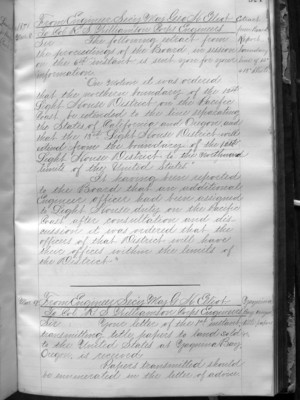 From Engineer Secy Maj Geo. H. Elliot
To Col. R. S. Williamson Corps Engineers
Sir The following extract from
the proceedings of the Board, in session
on the 6th instant is sent you for your
information.
"On motion it was ordered
that the northern boundary of the 12th
Light House District on the Pacific
Coast, be extended to the line separating
the States of California and Oregon and
that the 13th Light House District will
extend from the boundary of the 12th
Light House District to the northward
limits of the United States"
"It having been reported
to the Board that an additional
Engineer officer had been assigned
to Light House duty on the Pacific
Coast after consultation and dis-
cussion it was ordered that the
offices of that District will have
their offices within the limits of
the District."
From Engineer Secy Maj G. H. Elliot
To Col. R. S. Williamson Corps Engineers
Sir Your letter of the
transmitting title papers to land sold
to the United States at Yaquina Bay,
Oregon is received.
Papers transmitted should
be enumerated in the letter of advice